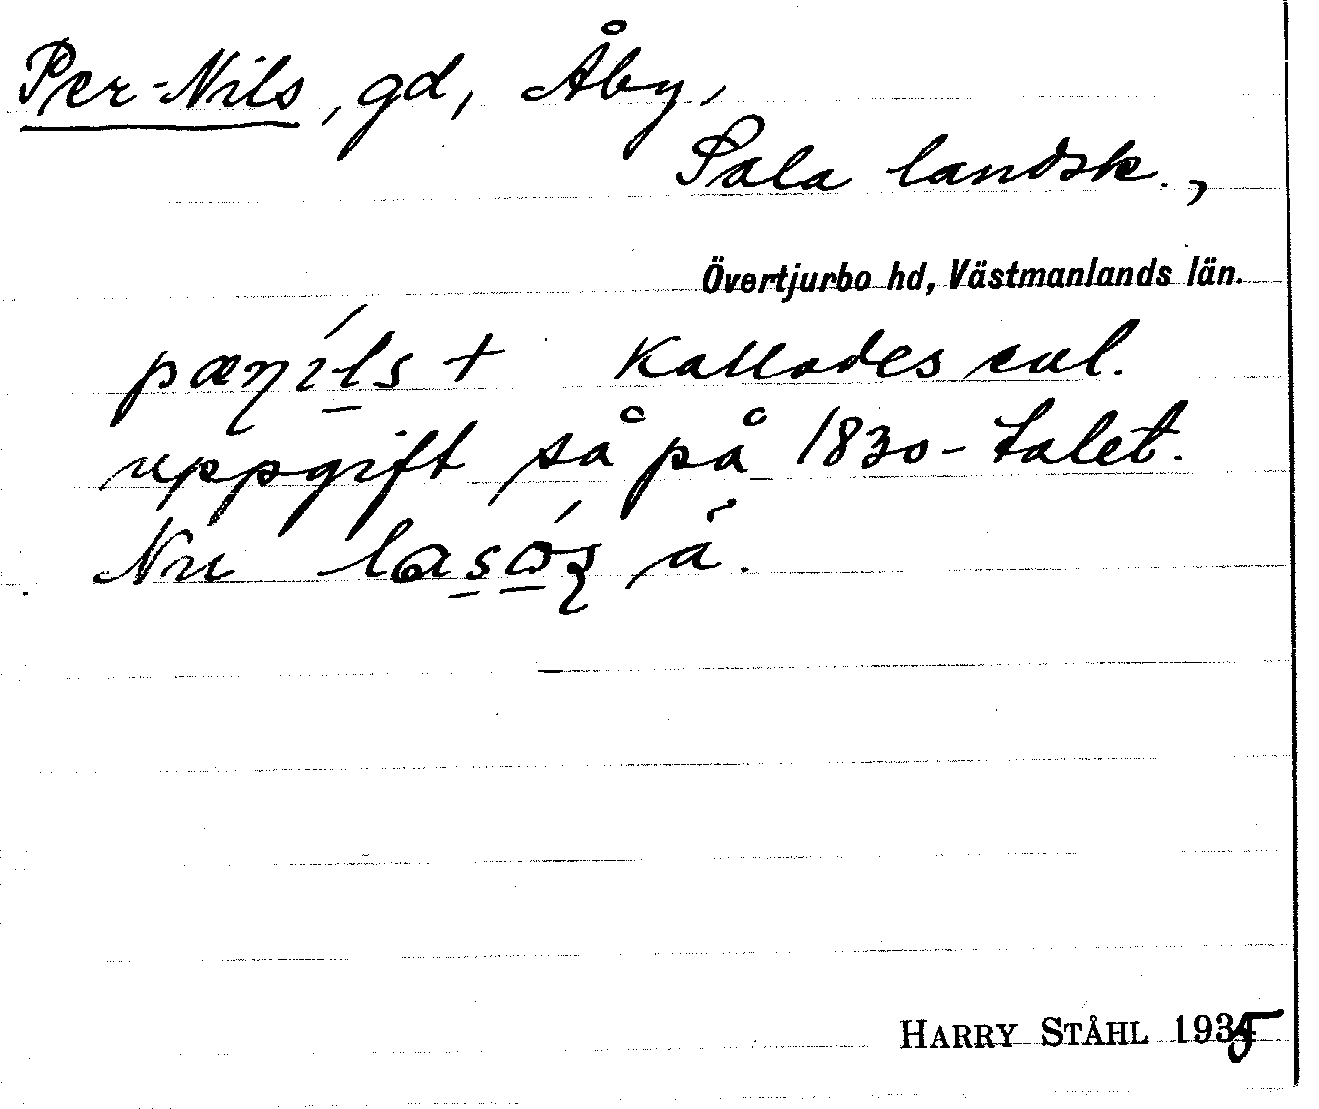 Per-Nils, gd, Åby,
Sala landsk.,
Övertjurbo hd, Västmanlands län.
pæníls + Kallades enl.
uppgift så på 1830-talet.
Nu
HARRY STÅHL 1935